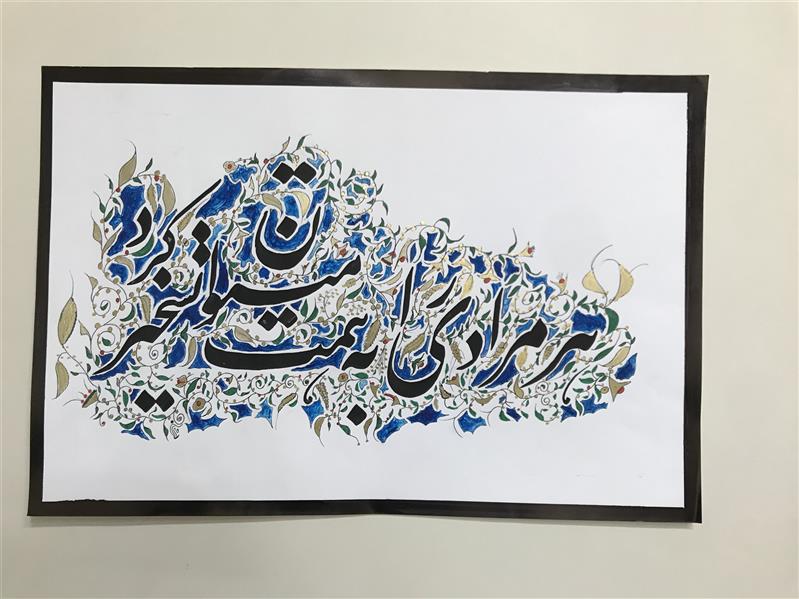 هر مرادی را به همت میتوان تسخیر کرد